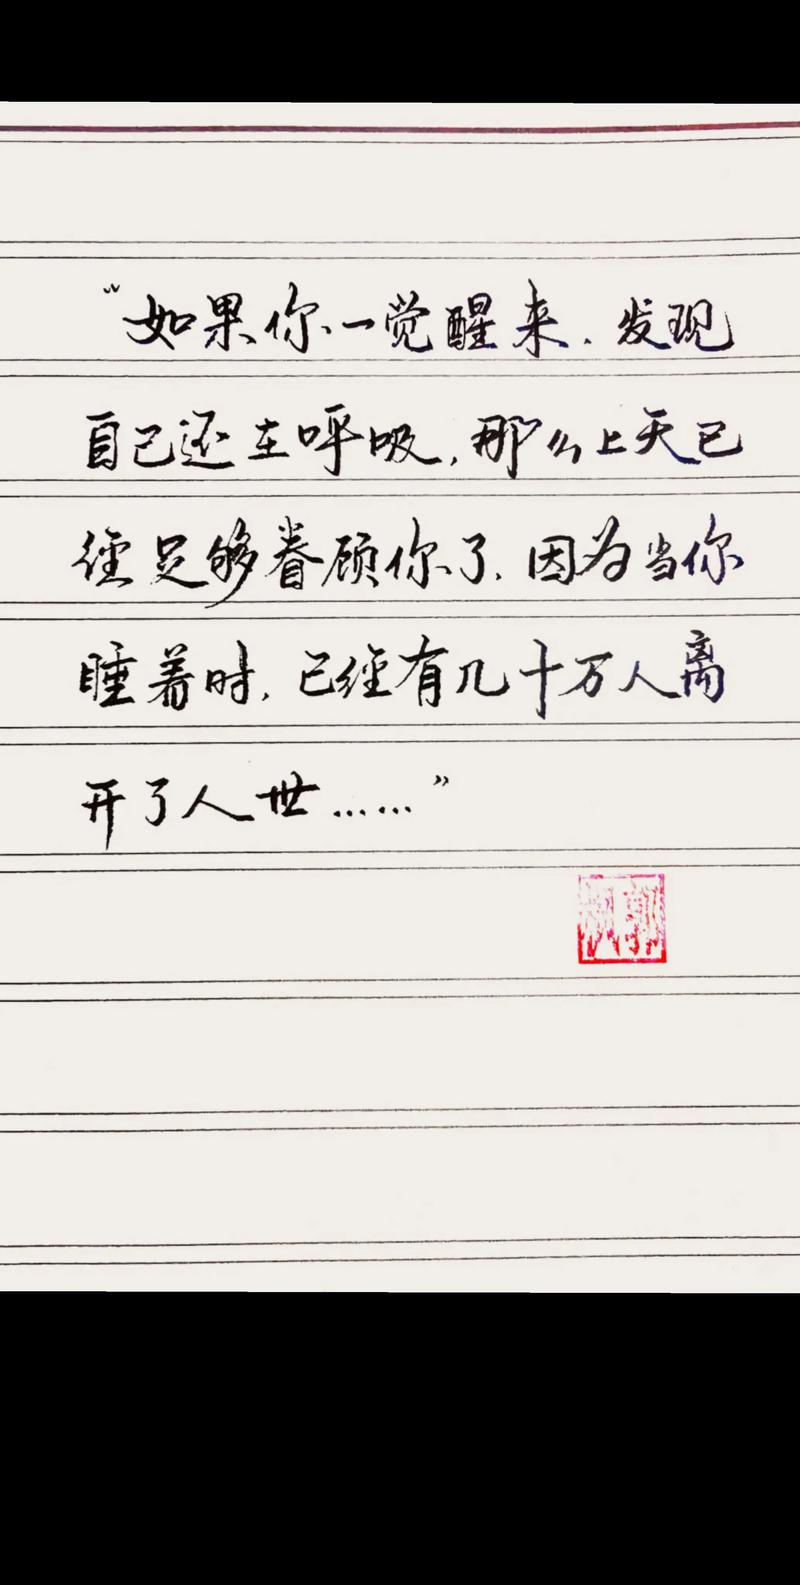 “如果你一觉醒来.发现
自己还在呼吸,那么上天已
经足够眷顾你了.因为当你
睡着时,已经有几十万人离
开了人世……”